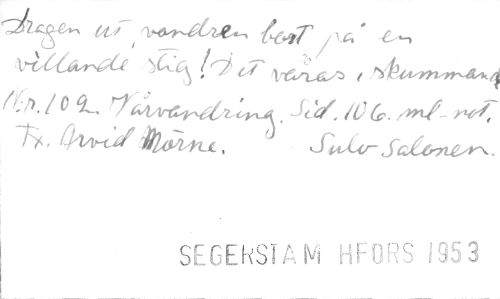 Dragen ut, vandren bort på en
villande stig! Det våras, skummand
N:r. 109. Vårvandring. Sid. 106. ml-not.
Tx. Arvid Mörne. Sulo Salonen.
SEGERSTAM HFORS 1953